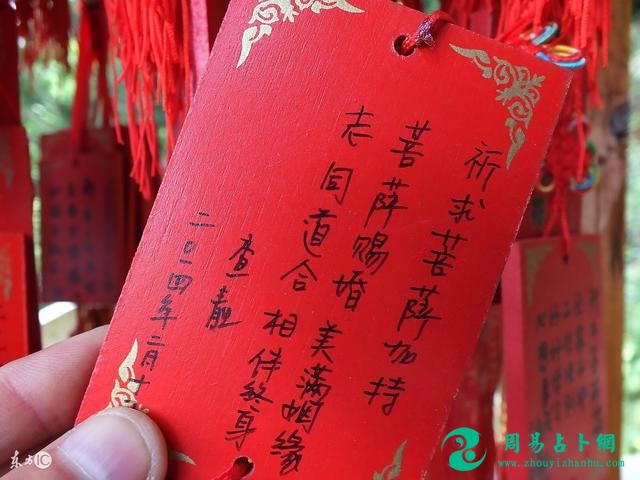 祈求菩萨加持
菩萨赐婚 美满姻缘
志同道合 相侍终身
查
二〇一四年二月十
周易占卜網
www.zhouyizhanbu.com
东方IC